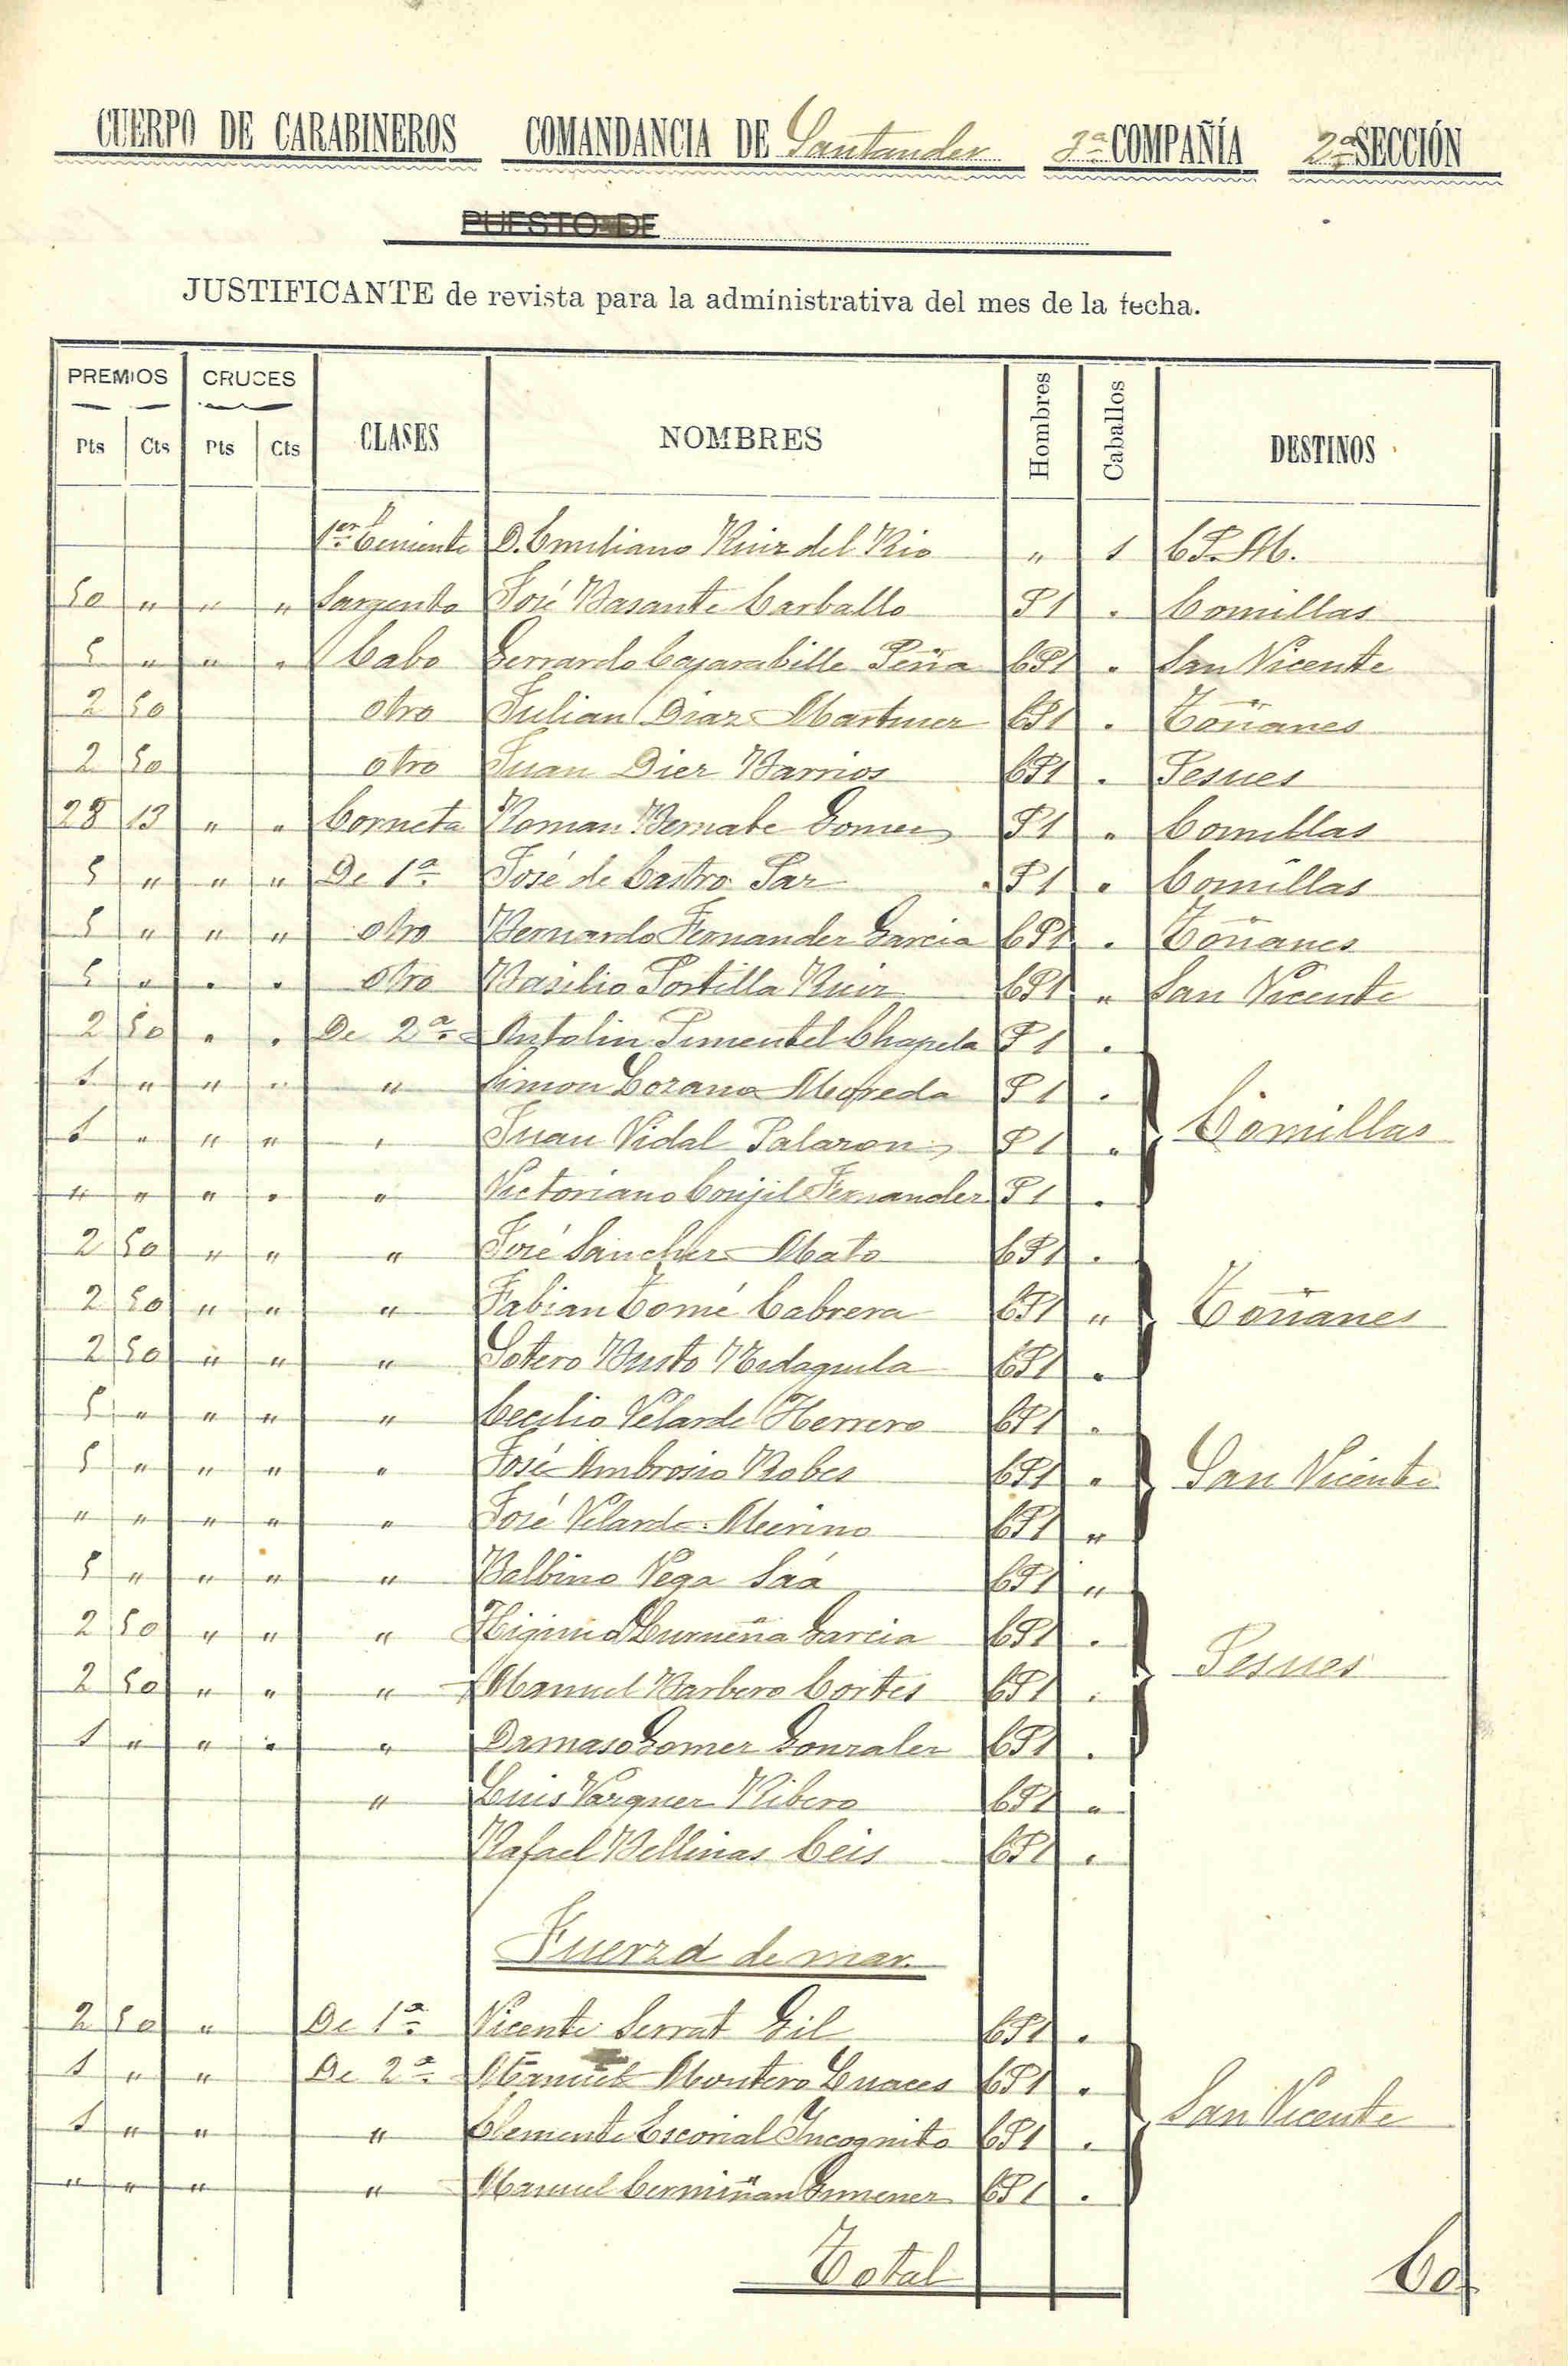 CUERPO DE CARABINEROS COMANDANCIA DE Santander 3ª COMPAÑÍA 2ª SECCIÓN
PUESTO DE
JUSTIFICANTE de revista para la administrativa del mes de la fecha.
PREMIOS CRUCES CLASES NOMBRES Hombres Caballos DESTINOS
Pts Cts Pts Cts
1er Teniente D. Emiliano Ruiz del Rio " 1 C P. M.
50 " " " Sargento José Basante Carballo P 1 " Comillas
5 " " " Cabo Gerrardo Peña CP1 " San Vicente
2 50 otro Julian Diaz Martinez CP1 " Toñanes
2 50 otro Juan Diez Barrios CP1 " Pesues
28 13 " " Corneta Roman Bernabe Gomez P1 " Comillas
5 " " " De 1ª José de Castro Paz P1 " Comillas
5 " " " otro Bernardo Fernandez Garcia CP1 " Toñanes
5 " " " otro Basilio Portilla Ruiz CP1 " San Vicente
2 50 " " De 2ª Antolin Pimentel Chapela P1 "
1 " " " " Simon Lozano Moreda P1 "
1 " " " " Juan Vidal Palazon P1 " Comillas
" " " " " Victoriano Conjil Fernandez P1 "
2 50 " " " José Sanchez Mato CP1 "
2 50 " " " Fabian Tomé Cabrera CP1 " Toñanes
2 50 " " " Sotero Busto CP1 "
5 " " " " Cecilio Velarde Herrero CP1 "
5 " " " " José Ambrosio Robes CP1 " San Vicente
" " " " " José Velarde Merino CP1 "
5 " " " " Balbino Vega Sáa CP1 "
2 50 " " " Higinio Garcia CP1 "
2 50 " " " Manuel Barbero Cortes CP1 " Pesues
1 " " " " Damaso Gomez Gonzalez CP1 "
" Luis Vazquez Ribero CP1 "
Rafael Bellinas Ceis CP1 "
Fuerza de mar.
2 50 " De 1ª Vicente Serrat Gil CP1 "
1 " " De 2ª Manuel Montero Luaces CP1 "
1 " " " Clemente Escorial Incognito CP1 " San Vicente
" " " " Manuel Cermiñan Gimenez CP1 "
Total